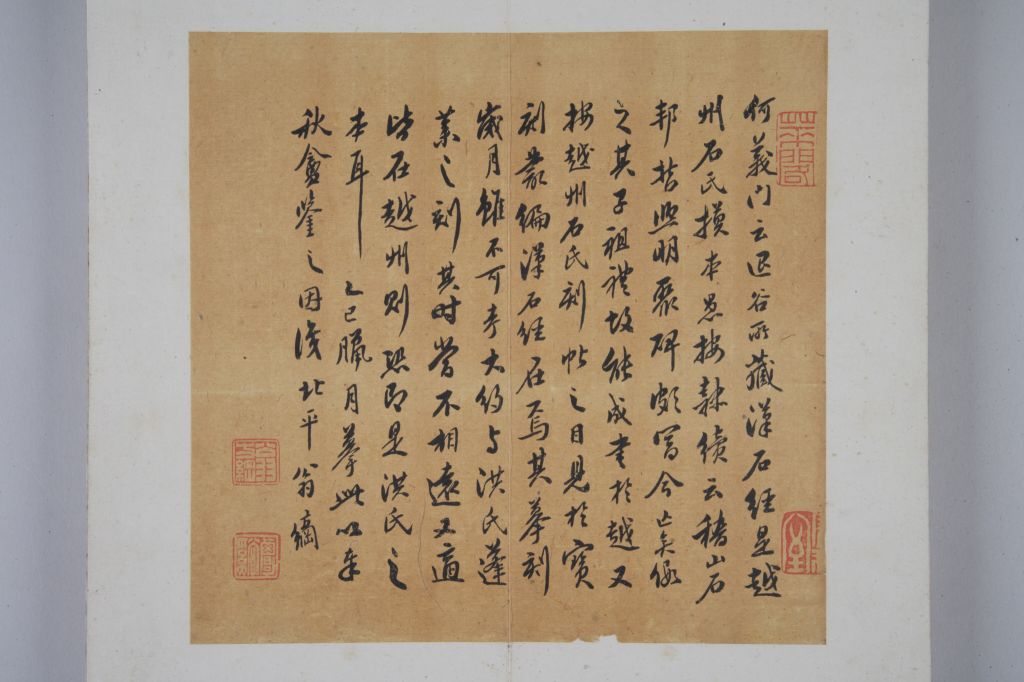 何義門云退谷所藏漢石經是越
州石氏摸本愚按隸續云稽山石
邦哲熙明聚碑頗富今亡矣假
之其子祖禮故能成書於越又
按越州石氏刻帖之目見於寶
刻叢編漢石經在焉其摹刻
歲月雖不可考大約与洪氏蓬
萊之刻其時當不相遠又適
皆在越州則恐即是洪氏之
本耳 乙巳臘月摹此以奉
秋盦鑒之因識 北平翁方綱